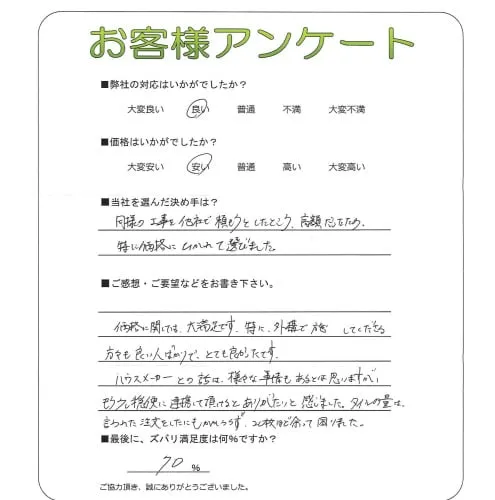 お客様アンケート
■弊社の対応はいかがでしたか？
大変良い　良い　普通　不満　大変不満
■価格はいかがでしたか？
大変安い　安い　普通　高い　大変高い
■当社を選んだ決め手は？
同様の工事を他社で頼もうとしたところ、高額だったため、
特に価格にひかれて選びました。
■ご感想・ご要望などをお書き下さい。
価格に関しては、大満足です。特に、外構で施 してくださる
方々も良い人ばかりで、とても良かったです。
ハウスメーカーとの話は、様々な事情もあるとは思いますが、
もう少し機便に連携して頂けるとありがたいと感じました。タイルの量は、
言われた注文をしたにもかかわらず、20枚ほど余って困りました。
■最後に、ズバリ満足度は何％ですか？
70 ％
ご協力頂き、誠にありがとうございました。